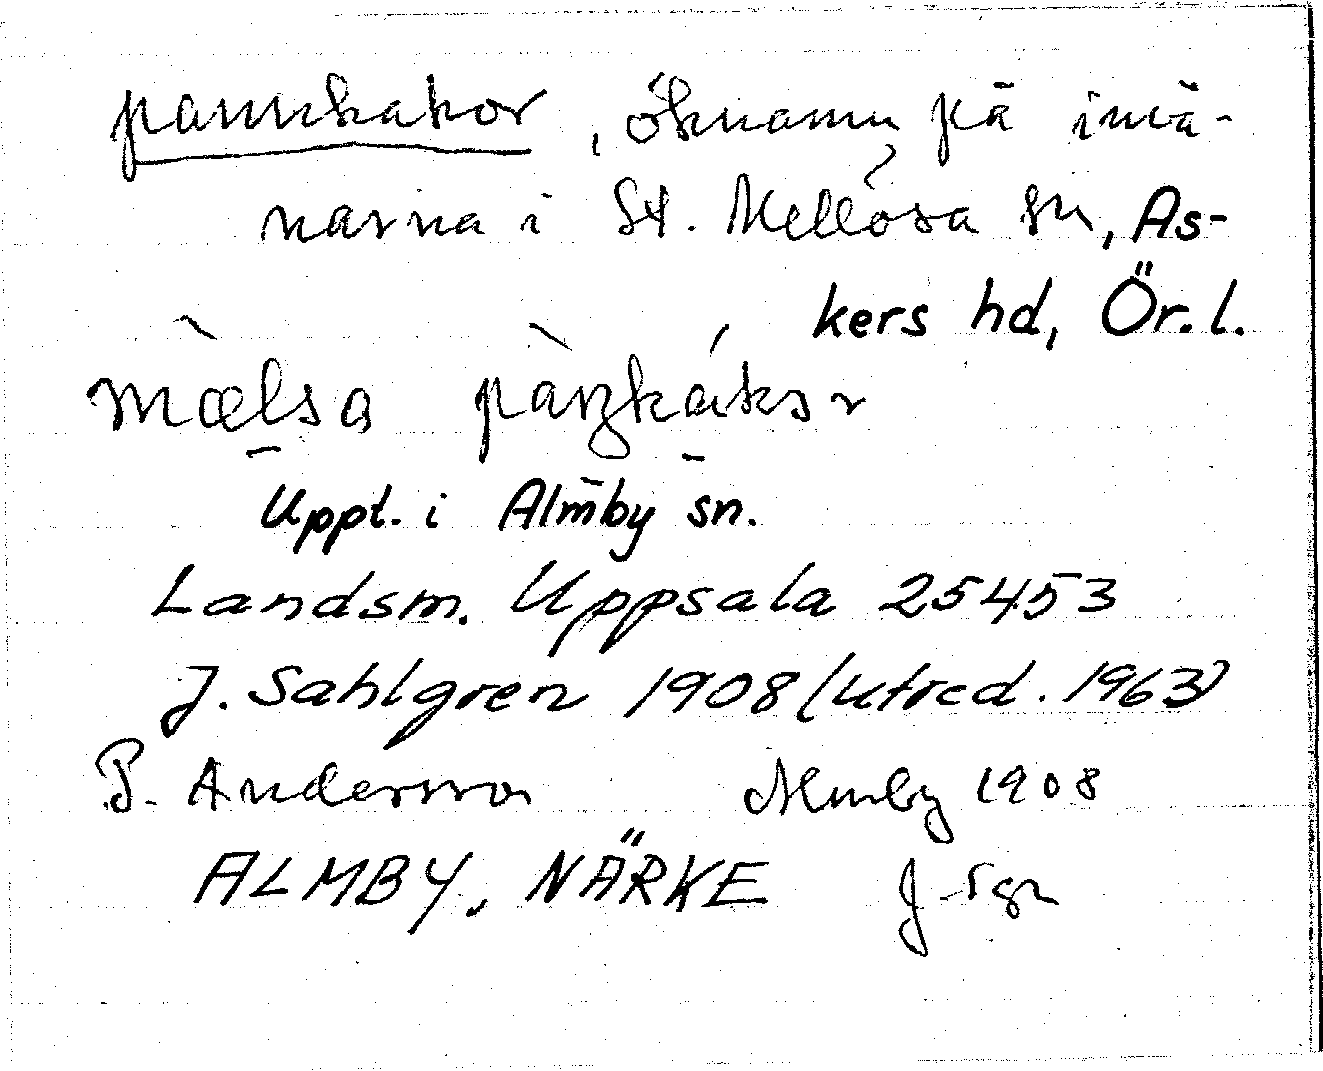 pannkakor, öknamn på invå-
narna i St. Mellösa sn, As-
kers hd, Ör. l.
mælsa
Uppt. i Almby sn.
Landsm. Uppsala 25453
J. Sahlgren 1908 (utred. 1963)
P. Andersson Almby 1908
ALMBY, NÄRKE J Sgn